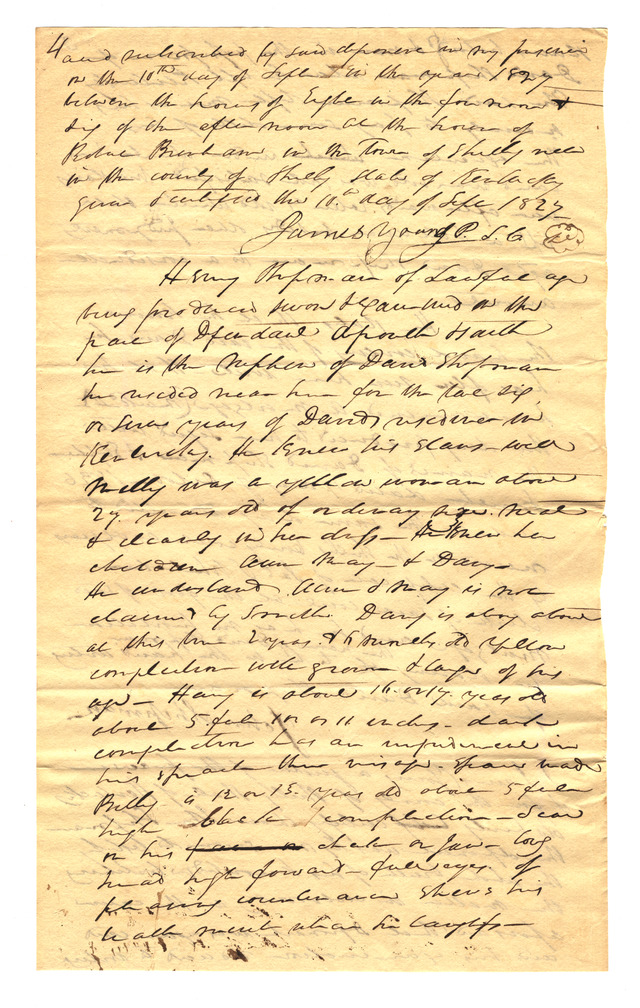 4
and subscribed by said deponent in my presence
on the 10th day of Sept in the year 1827
between the hours of Eight in the forenoon &
Six of the afternoon at the house of
in the Town of Shelby
in the county of Shelby state of Kentucky
Given & certified this 10th day of Sept 1827
James Young P. S. C
Henry Shipman of Lawful age
being produced sworn & Examined on the
part of Defendant deposeth & saith
he is the Nephew of David Shipman
he resided near him for the last six
or seven years of Davids residence in
Kentucky. He knew his Slaves well
Milly was a yellow woman about
27 years old of ordinary size neat
& cleanly in her dress - He knew her
children Ann May - & Davy -
He understands Ann & May is not
claimed by Smith. Davy is a boy about
at this time 2 years & 6 months old yellow
complection well grown & large of his
age - Harry is about 16 or 17 years old
about 5 feet 10 or 11 inches - dark
complection has an impediment in
his speach thin visage. Spare made
Billy is 12 or 13 years old about 5 feet
high black complection - Scar
on his cheek or Jaw - long
head high forward - full eyes of
pleasing countenance Shews his
teeth much when he laughs -